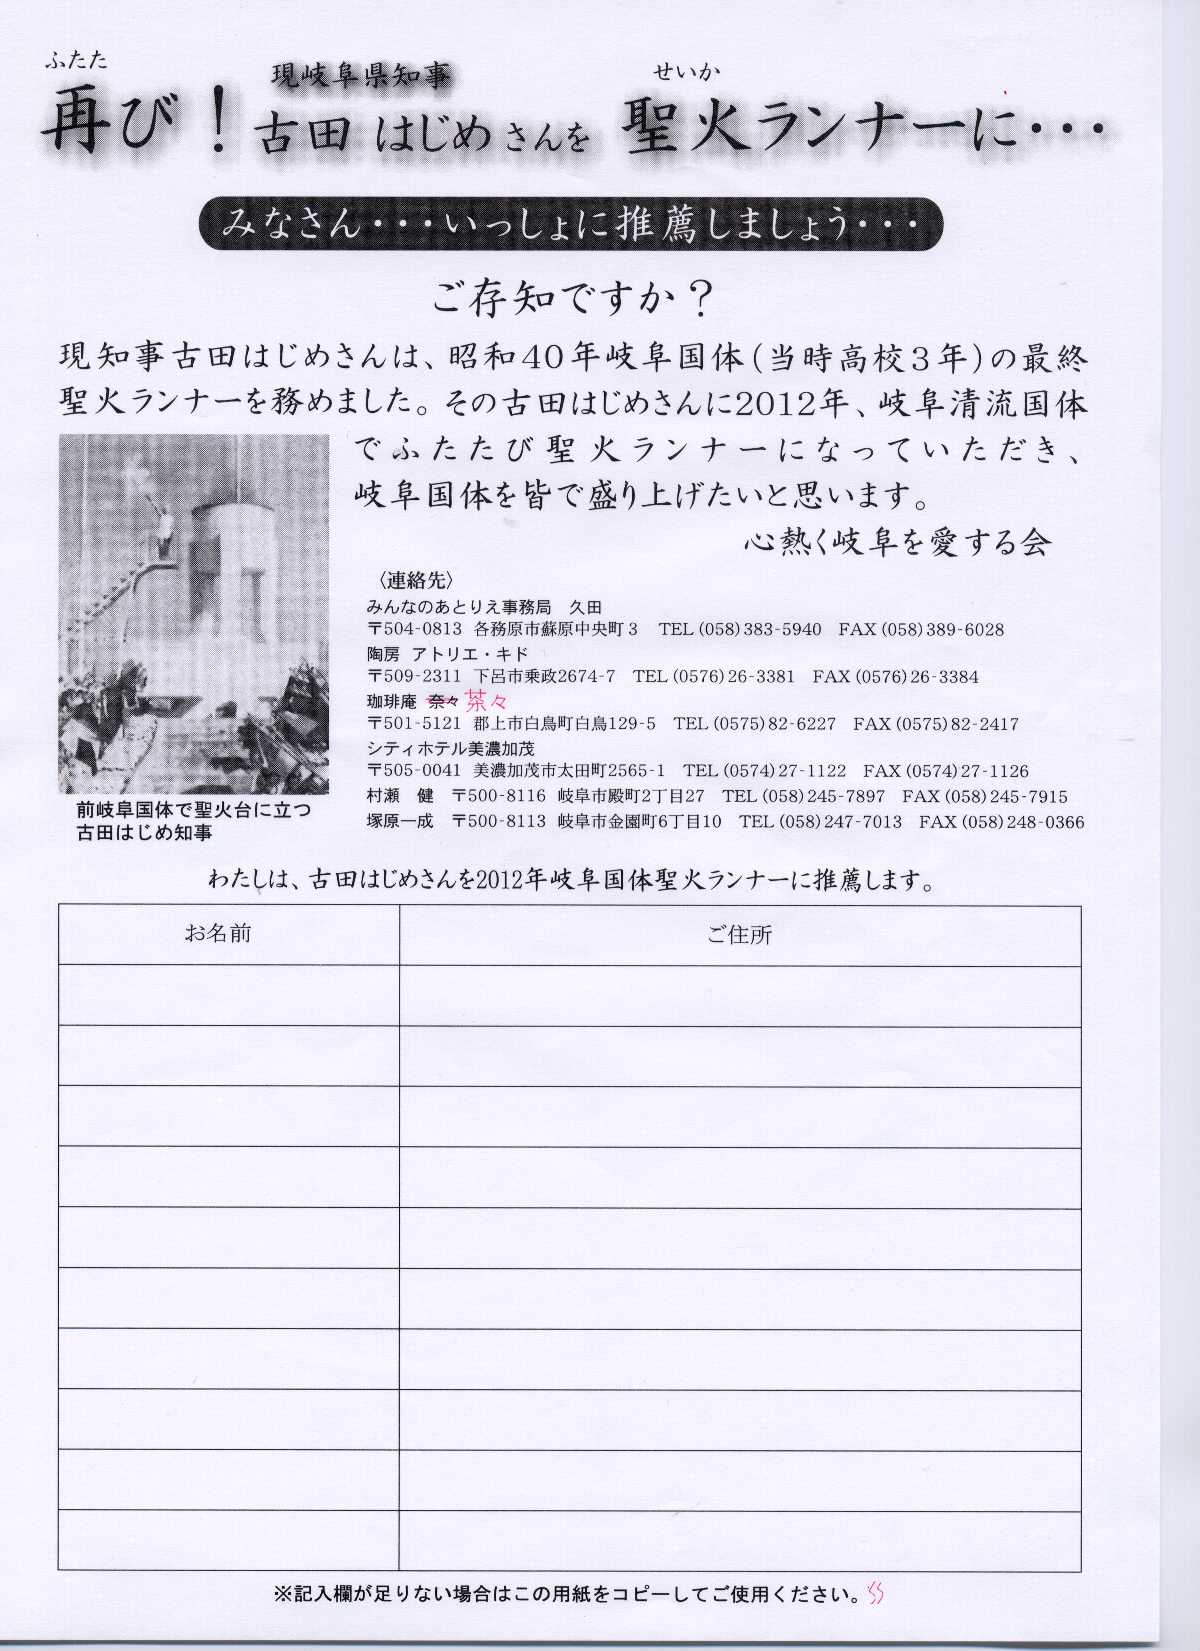 ふたた
再び！ 現岐阜県知事 古田 はじめ さんを せいか 聖火ランナーに・・・
みなさん・・・いっしょに推薦しましょう・・・
ご存知ですか？
現知事古田はじめさんは、昭和40年岐阜国体（当時高校３年）の最終
聖火ランナーを務めました。その古田はじめさんに2012年、岐阜清流国体
でふたたび聖火ランナーになっていただき、
岐阜国体を皆で盛り上げたいと思います。
心熱く岐阜を愛する会
〈連絡先〉
みんなのあとりえ事務局　久田
〒504-0813 各務原市蘇原中央町３　TEL(058)383-5940　FAX(058)389-6028
陶房 アトリエ・キド
〒509-2311 下呂市乗政2674-7　TEL(0576)26-3381　FAX(0576)26-3384
珈琲庵 奈々 茶々
〒501-5121 郡上市白鳥町白鳥129-5　TEL(0575)82-6227　FAX(0575)82-2417
シティホテル美濃加茂
〒505-0041 美濃加茂市太田町2565-1　TEL(0574)27-1122　FAX(0574)27-1126
村瀬　健　〒500-8116 岐阜市殿町2丁目27　TEL(058)245-7897　FAX(058)245-7915
塚原一成　〒500-8113 岐阜市金園町6丁目10　TEL(058)247-7013　FAX(058)248-0366
前岐阜国体で聖火台に立つ
古田はじめ知事
わたしは、古田はじめさんを2012年岐阜国体聖火ランナーに推薦します。
お名前　ご住所
※記入欄が足りない場合はこの用紙をコピーしてご使用ください。